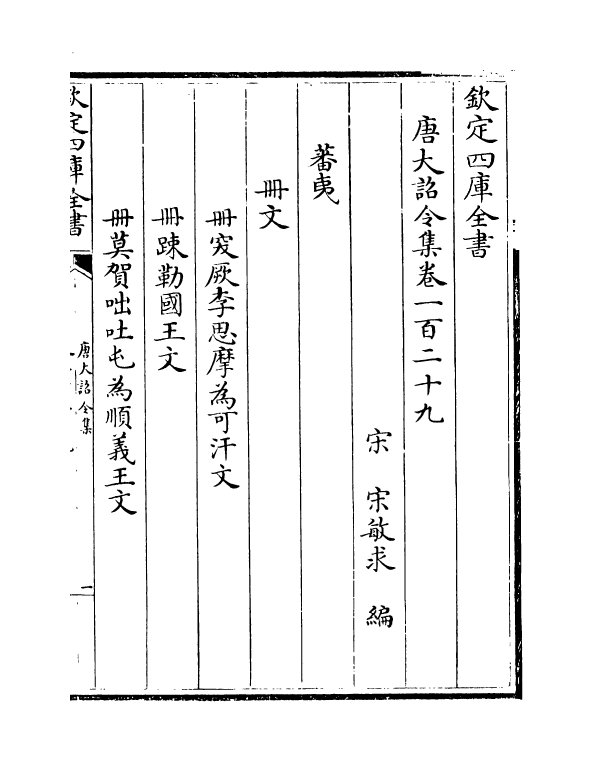 欽定四庫全書
唐大詔令集卷一百二十九
宋　宋敏求　編
蕃夷
冊文
冊突厥李思摩為可汗文
冊踈勒國王文
冊莫賀咄吐屯為順義王文
欽定四庫全書
唐大詔令集
一